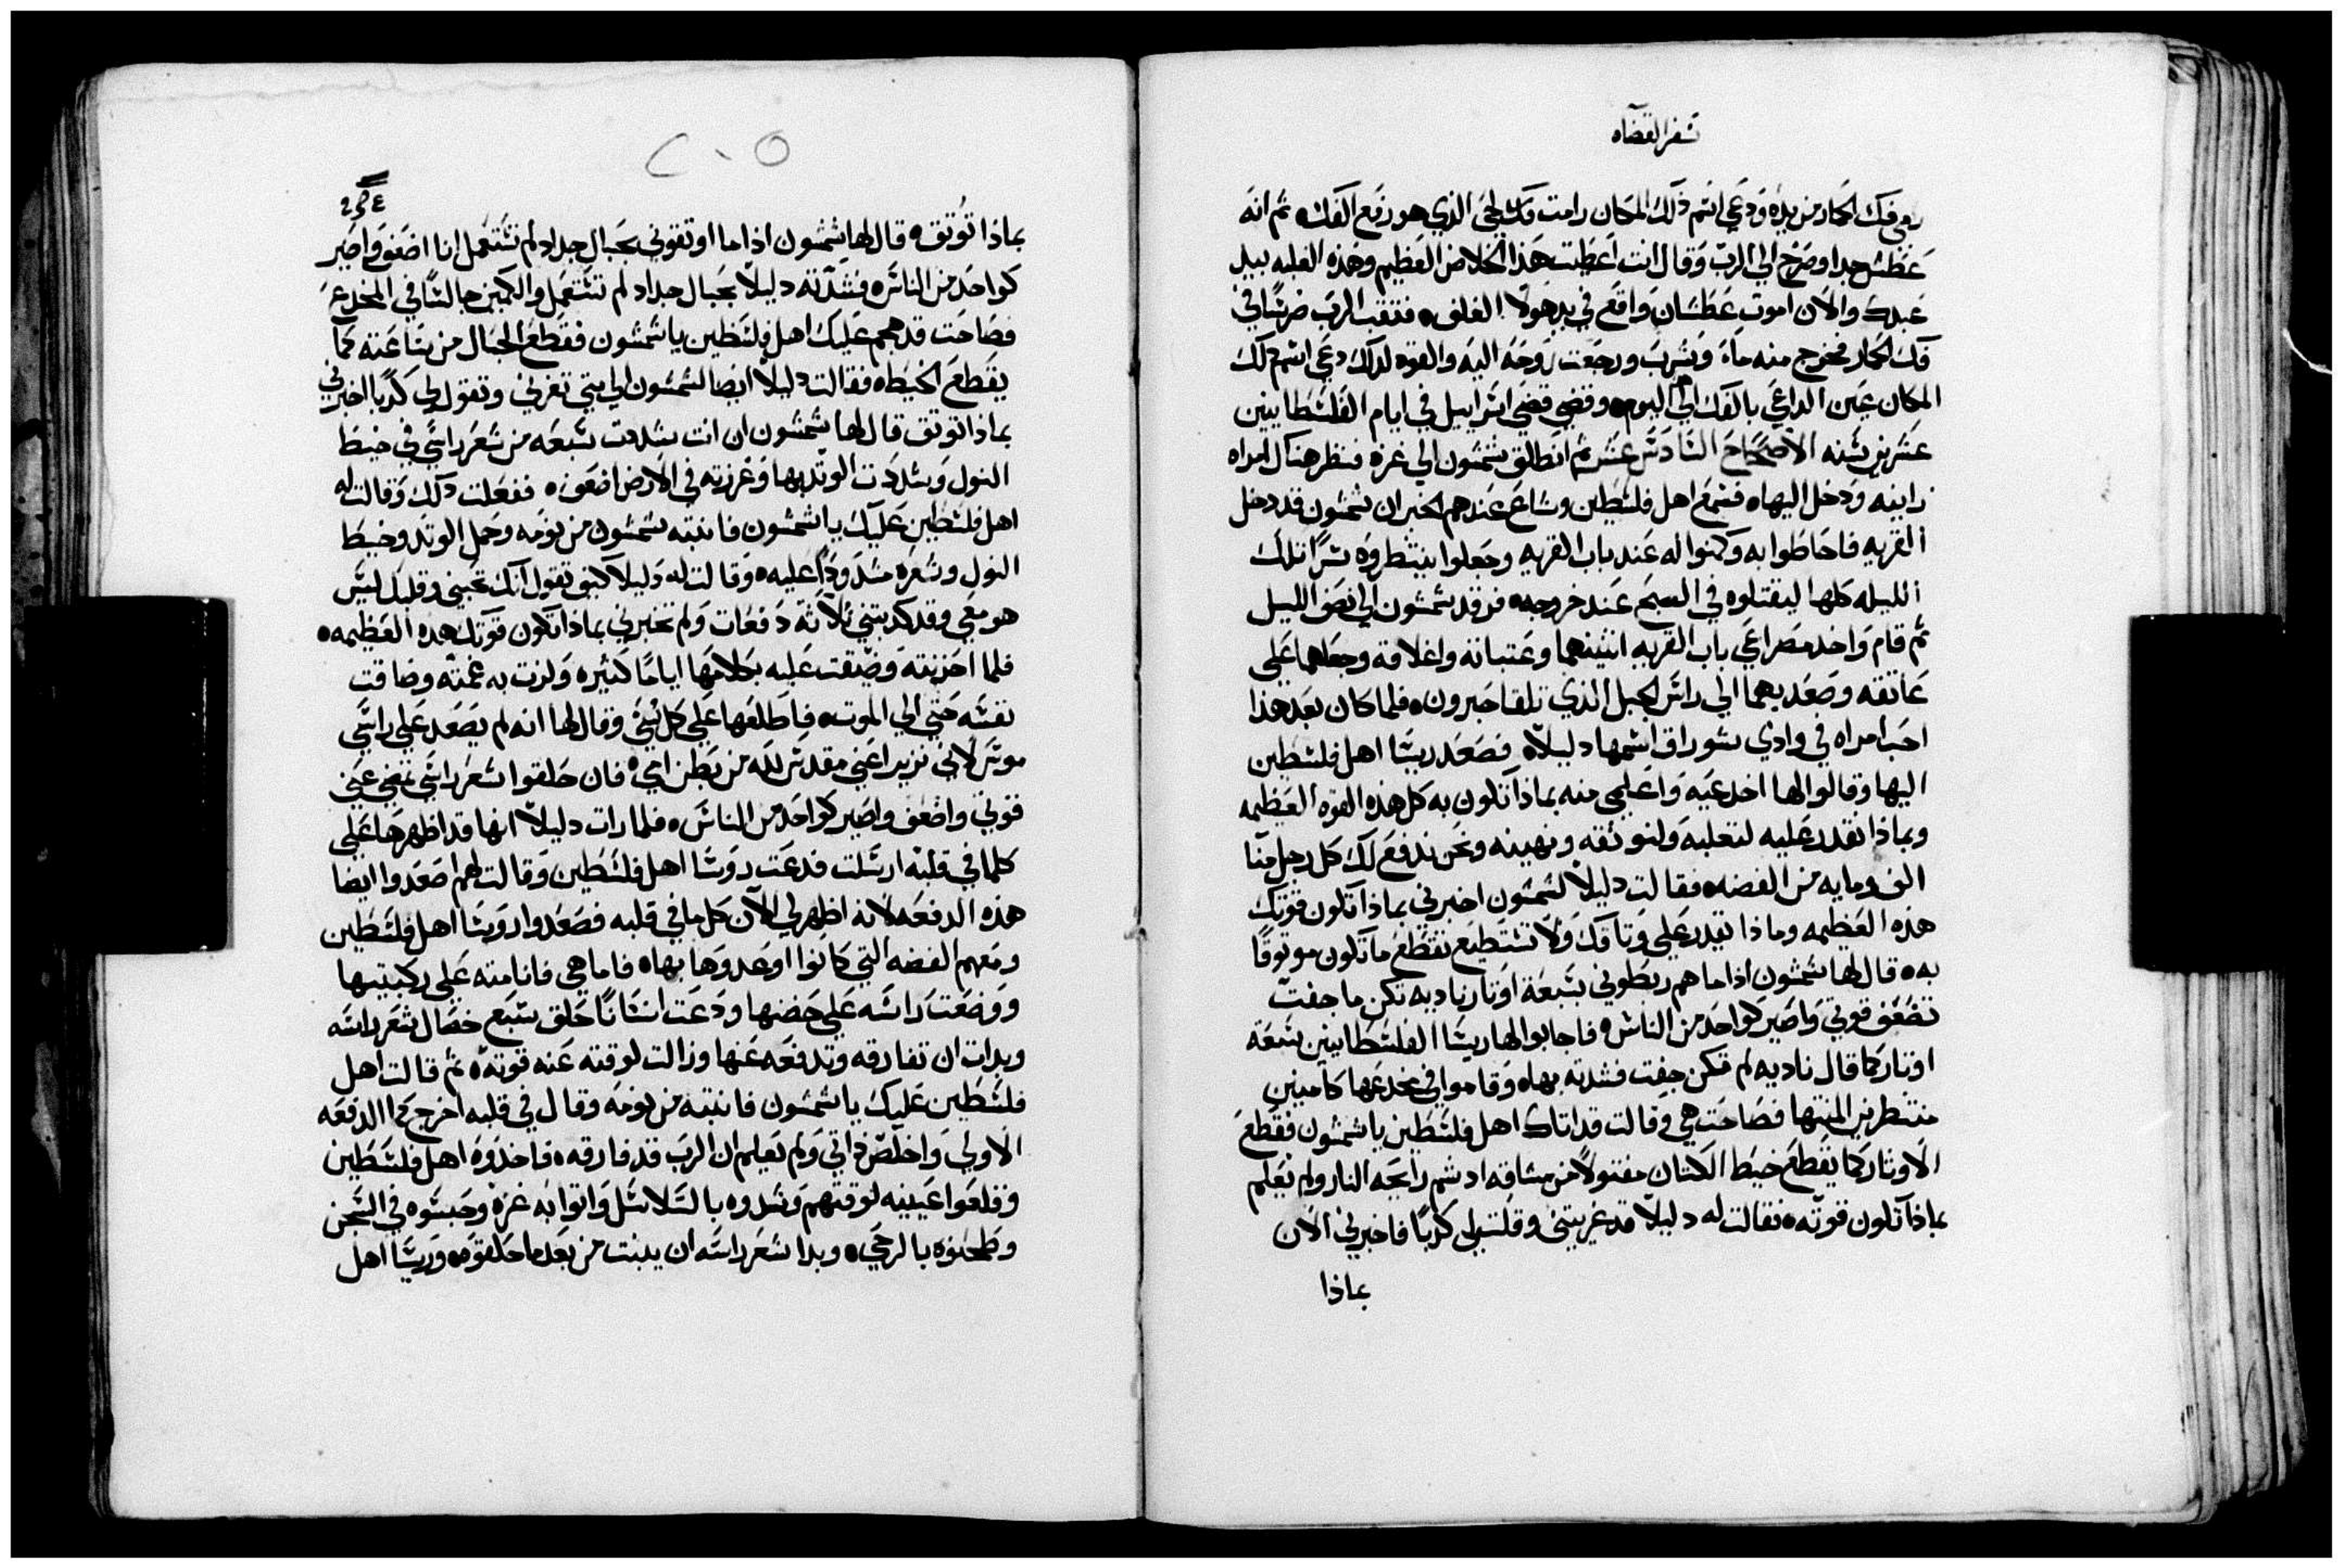 سفر القضاه
رمي فك الحمار من يده ودعي اسم ذلك المكان رامت فك لحي الذي هو رفع الفك ثم انه
عطش جدا وصرخ الي الرب وقال انت اعطيت هذا الخلاص العظيم وهذه الغلبه بيد
عبدك والان اموت عطشان واقع في يد هولا الغلف ففتقب الرب ضرسا في
فك الحمار فخرج منه ما وشرب ورجعت روحه اليه والقوه لذلك دعي اسم ذلك
المكان عين الداعي بالفك الي اليوم وقضي قضي اسراييل في ايام الفلسطانيين
عشرين سنه الاصحاح السادس عشر ثم انطلق شمشون الي غزه فنظر هناك امراه
زانيه ودخل اليها فسمع اهل فلسطين وشاع عندهم الخبر ان شمشون قد دخل
القريه فاحاطوا به وكمنوا له عند باب القريه وجعلوا ينتظروه سرا تلك
الليله كلها ليقتلوه في الصبح عند خروجه فرقد شمشون الي نصف الليل
ثم قام واخد مصراعي باب القريه اثنينهما وعتباته واغلاقه وجعلهما علي
عاتقه وصعد بهما الي راس الجبل الذي تلقا حبرون فلما كان بعد هذا
احب امراه في وادي سوراق اسمها دليلا فصعد ريسا اهل فلسطين
اليها وقالوا لها اخدعيه واعلمي منه بماذا تكون به كل هذه القوه العظيمه
وبماذا نقدر عليه لنغلبه ولنوثقه ونهينه ونحن ندفع لك كل رجل منا
الف ومايه من الفضه فقالت دليلا لشمشون اخبرني بماذا تكون قوتك
هذه العظيمه وماذا يقدر علي وثاقك ولا تستطيع تقطع ما تكون موثوقا
به قال لها شمشون اذا ما هم ربطوني بسبعة اوتار ناديه تكن ما جفت
تضعف قوتي واصير كواحد من الناس فاجابوا لها ريسا الفلسطانيين بسبعة
اوتار كما قال ناديه لم تكن جفت فشدته بها وقاموا في مخدعها كامنين
منتظرين المنتها فصاحت هي وقالت قد اتاك اهل فلسطين يا شمشون فقطع
الاوتار كما يقطع خيط الكتان مفتولا من مشاقه اد شم رايحه النار ولم يعلم
بماذا تكون قوته فقالت له دليلا قد غريتني وقلت لي كدبا فاخبرني الان
بماذا
٢٠٥
بماذا توثق قال لها شمشون اذا ما اوثقوني بحبال جداد لم تستعمل انا اضعف واصير
كواحد من الناس فشدته دليلا بحبال جداد لم تستعمل والكمين جالسا في المخدع
فصاحت قد هجم عليك اهل فلسطين يا شمشون فقطع الحبال من ساعته كما
يقطع الخيط فقالت دليلا ايضا لشمشون الي متي تغرني وتقول لي كدبا اخبرني
بماذا توثق قال لها شمشون ان انت شددت سبعه من شعر راسي في خيط
النول وشددت الوتد بها وغرزته في الارض اضعف ففعلت دلك وقالت له
اهل فلسطين عليك يا شمشون فانتبه شمشون من نومه وحمل الوتد وخيط
النول وشعره مشدودا عليه وقالت له دليلا كيف تقول انك تحبني وقلبك ليس
هو معي وقد كدبتني ثلاثة دفعات ولم تخبرني بماذا تكون قوتك هذه العظيمه
فلما احزنته وضيقت عليه بكلامها اياما كثيره ولزت به غمته وضاقت
نفسه حتي الي الموت فاطلعها علي كل شي وقال لها انه لم يصعد علي راسي
موس لاني نزير اعني مقدس لله من بطن امي فان حلقوا شعر راسي تنحي عني
قوتي واضعف واصير كواحد من الناس فلما رات دليلا انها قد اظهرها علي
كلما في قلبه ارسلت فدعت روسا اهل فلسطين وقالت لهم اصعدوا ايضا
هذه الدفعه لانه اظهر لي الان كل ما في قلبه فصعدوا روسا اهل فلسطين
ومعهم الفضه التي كانوا اوعدوها بها فاما هي فانامته علي ركبتيها
ووضعت راسه علي حضنها ودعت انسانا حلق سبع خصال شعر راسه
وبدات ان تفارقه وتدفعه عنها وزالت لوقته عنه قوته ثم قالت اهل
فلسطين عليك يا شمشون فانتبه من نومه وقال في قلبه اخرج كما الدفعه
الاولي واخلص داتي ولم يعلم ان الرب قد فارقه فاخدوه اهل فلسطين
وقلعوا عينيه لوقتهم وشدوه بالسلاسل واتوا به غزه وحبسوه في السجن
وطحنوه بالرحي وبدا شعر راسه ان ينبت من بعد ما حلقوه وريسا اهل